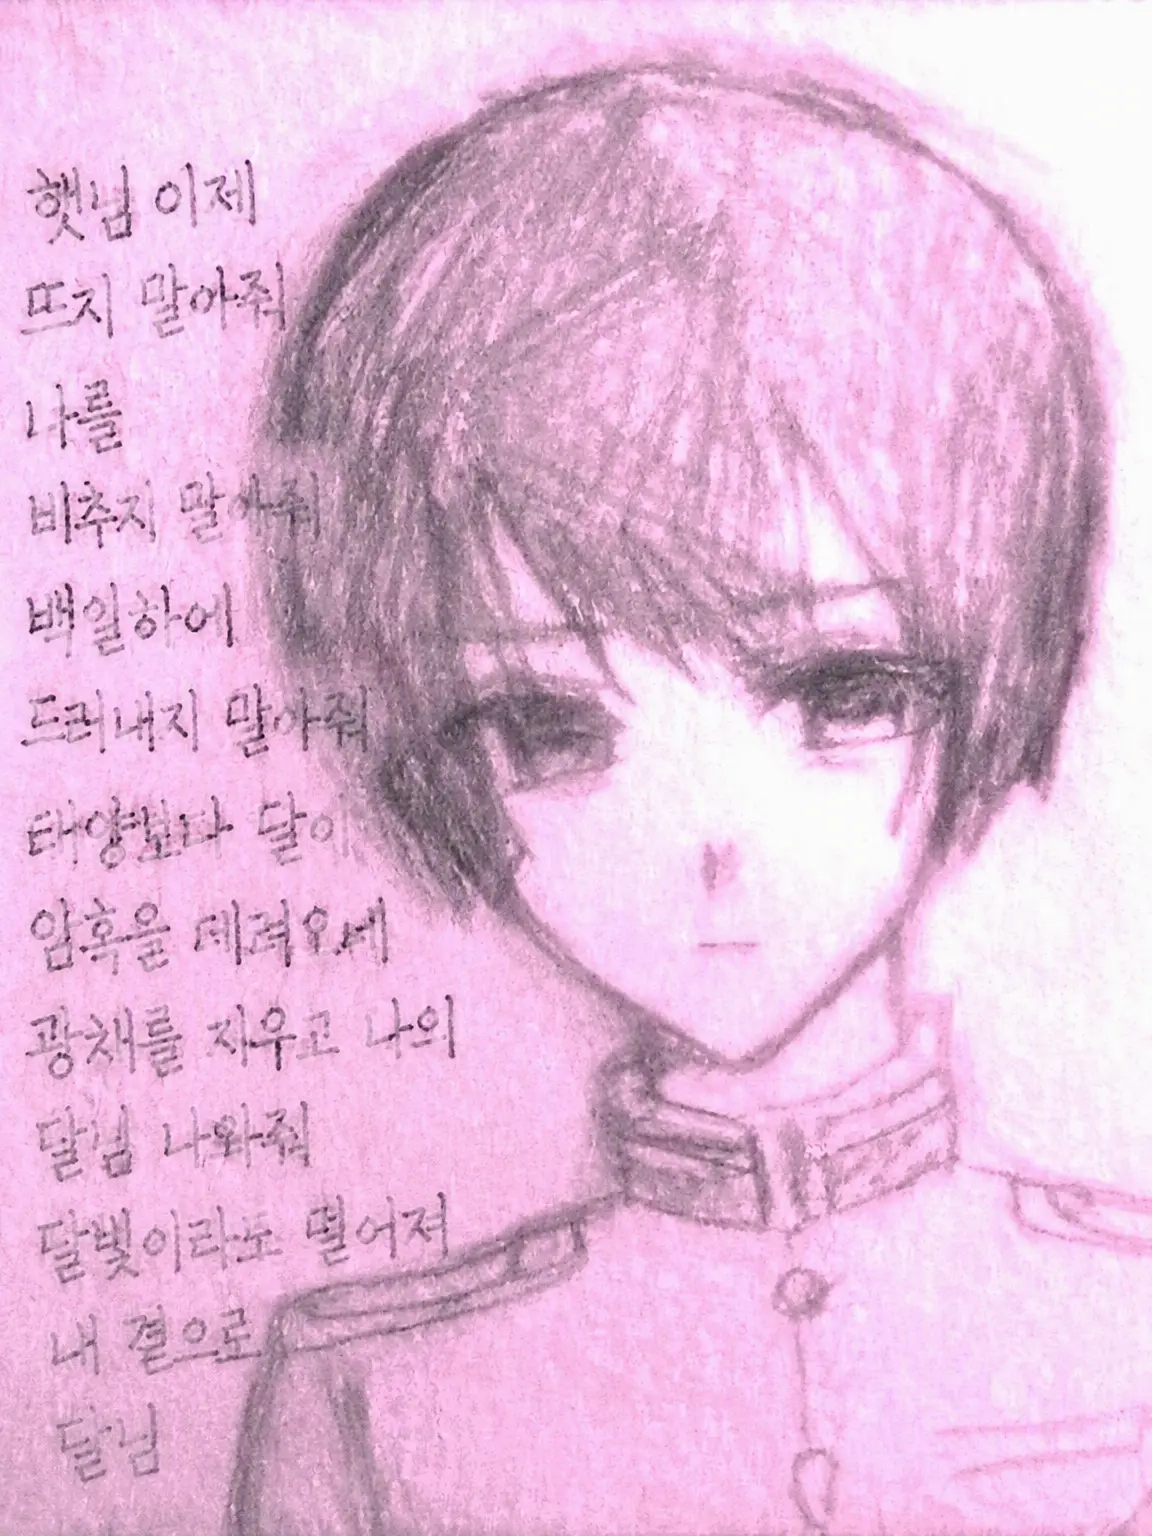 햇님 이제
뜨지 말아줘
나를
비추지 말아줘
백일하에
드러내지 말아줘
태양보다 달이
암흑을 데려오네
광채를 지우고 나의
달님 나와줘
달빛이라도 떨어져
내 곁으로
달님